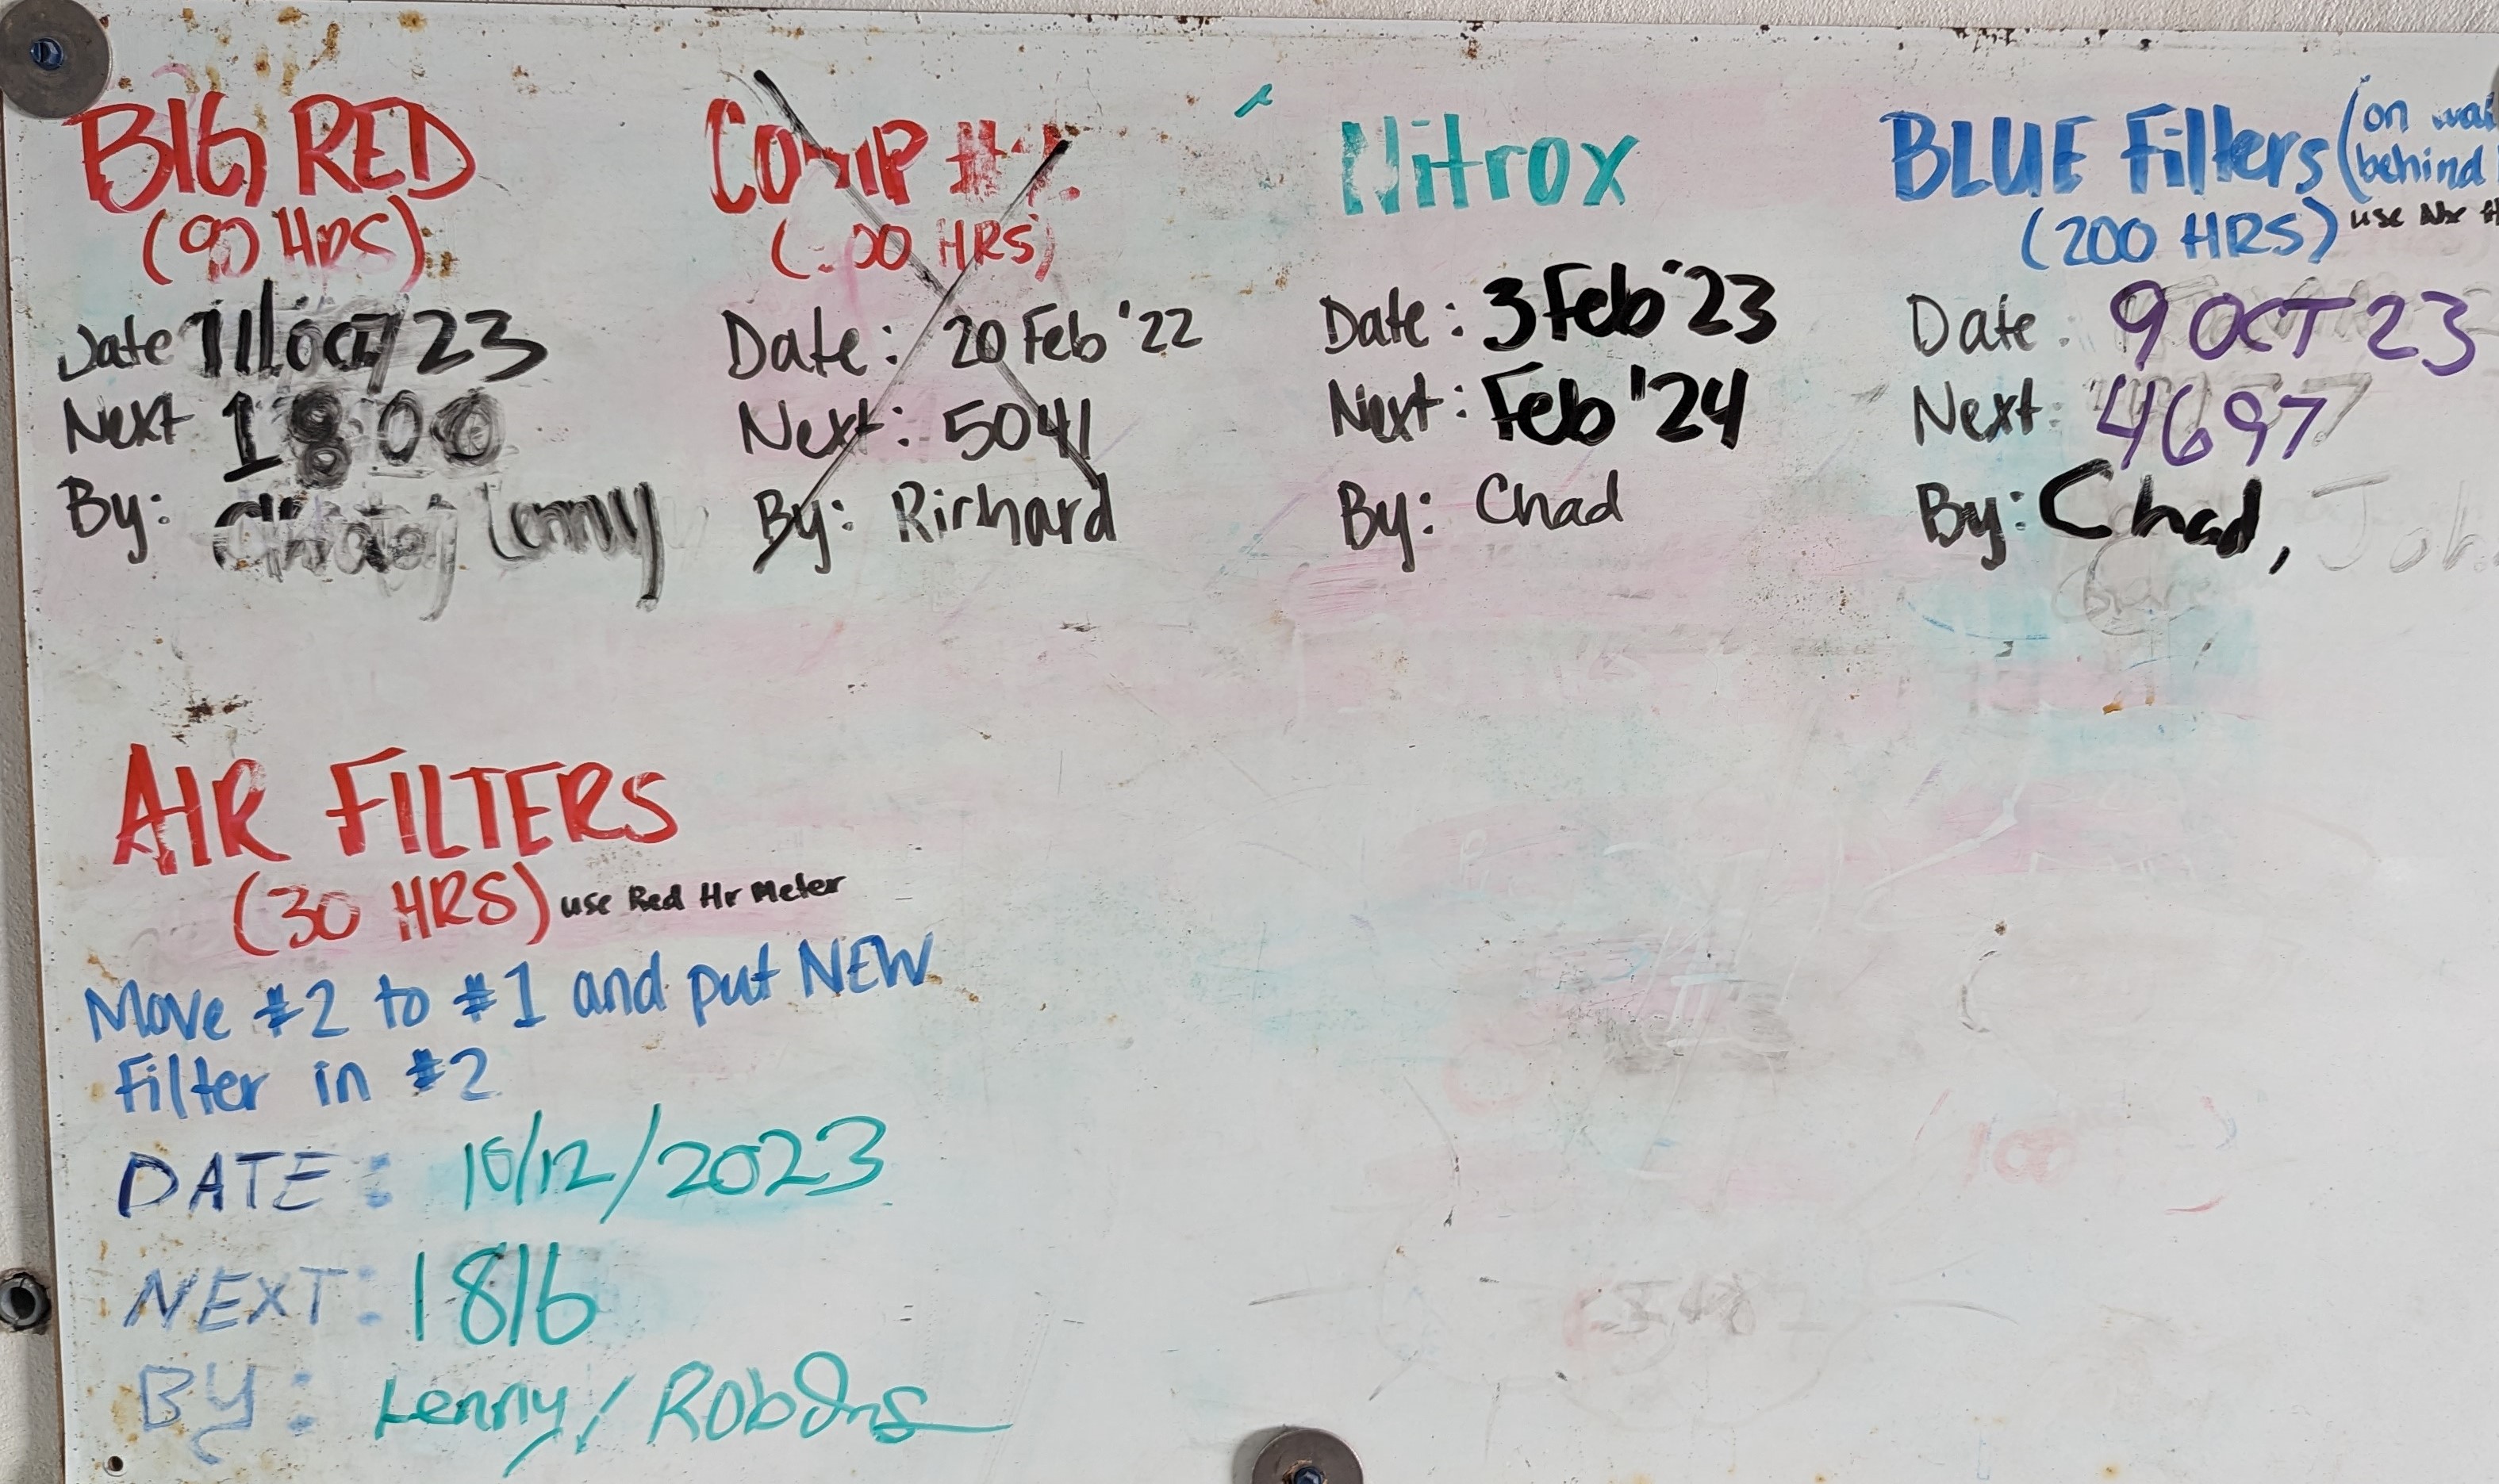 BIG RED
(90 HRS)
Date 11/Oct/23
Next 1800
By: Lenny
COMP #
HRS)
Date: 20 Feb '22
Next: 5041
By: Richard
Nitrox
Date: 3 Feb '23
Next: Feb '24
By: Chad
BLUE Filters (on
behind
(200 HRS) use
Date: 9 OCT 23
Next: 4697
By: Chad,
AIR FILTERS
(30 HRS) use Red Hr Meter
Move #2 to #1 and put NEW
Filter in #2
DATE: 10/12/2023
NEXT: 1816
BY: Lenny/